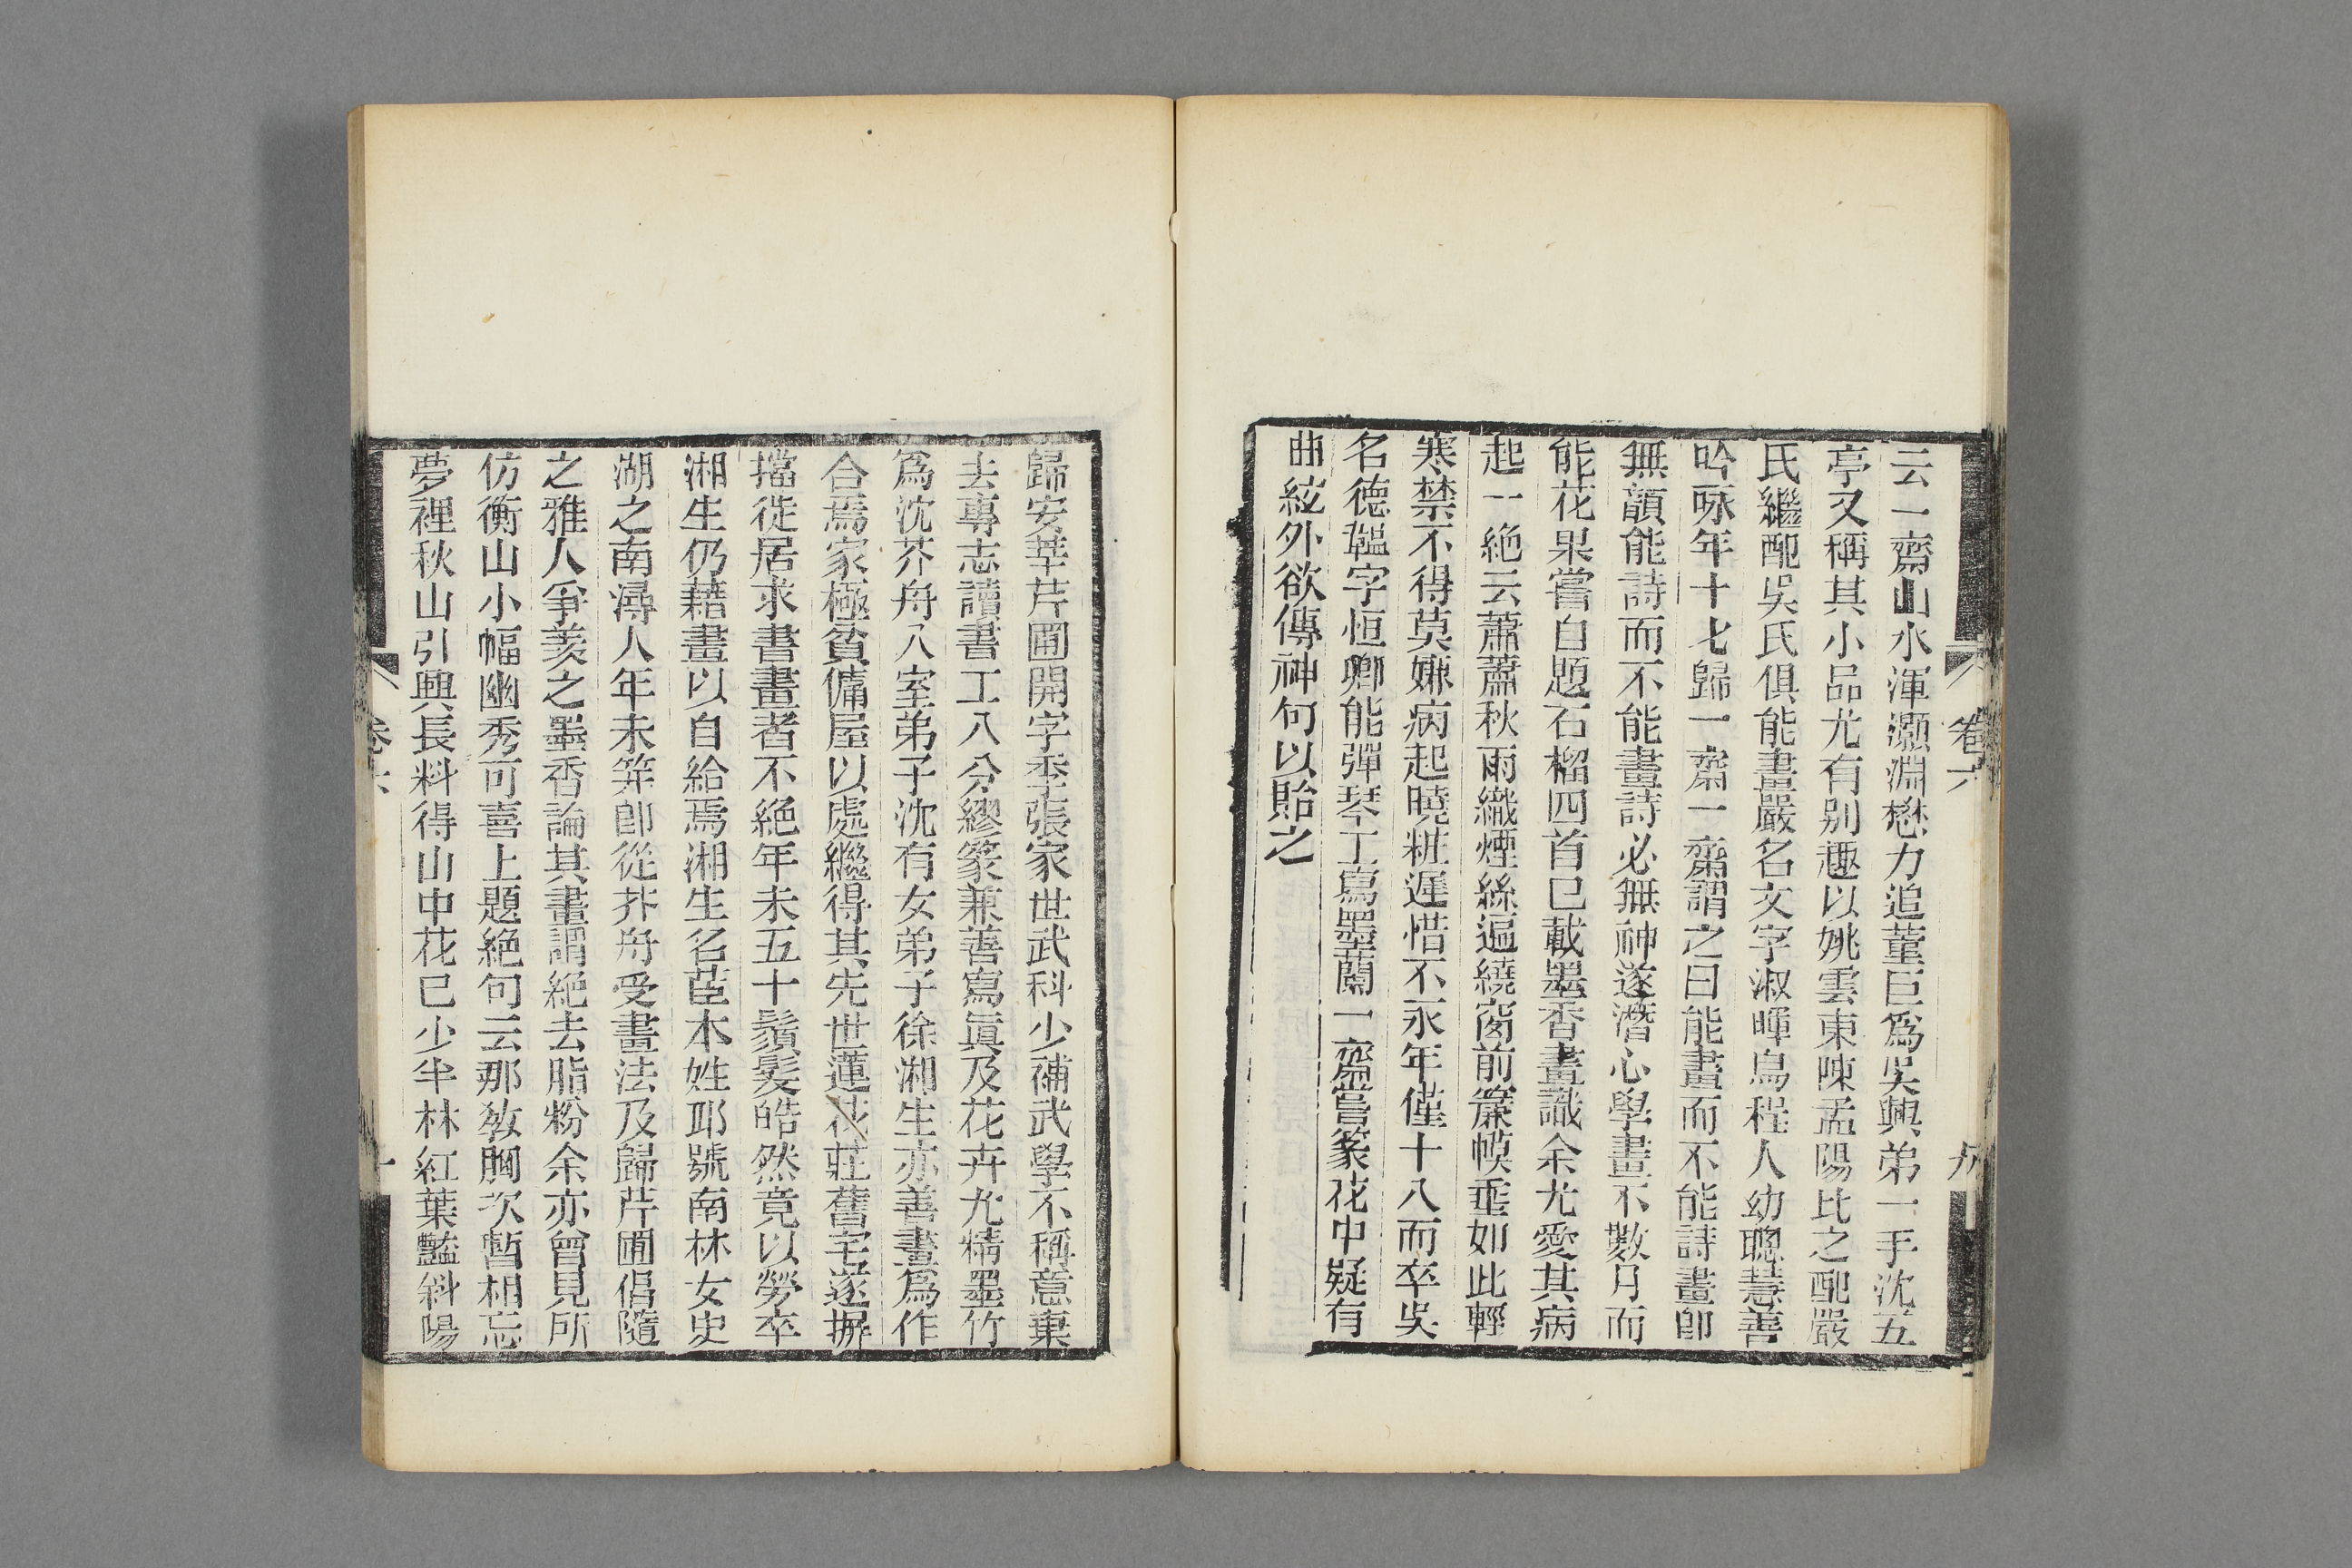 云一齋山水渾灝淵懋力追董巨爲吳興弟一手沈五
亭又稱其小品尤有别趣以姚雲東陳孟陽比之配嚴
氏繼配吳氏俱能畫嚴名文字淑暉烏程人幼聰慧善
吟咏年十七歸一齋一齋謂之曰能畫而不能詩畫卽
無韻能詩而不能畫詩必無神遂潛心學畫不數月而
能花果嘗自題石榴四首已載墨香畫識余尤愛其病
起一絶云蕭蕭秋雨織煙絲遍繞窗前簾幙垂如此輕
寒禁不得莫嫌病起曉粧遲惜不永年僅十八而卒吳
名德韞字恒卿能彈琴工寫墨蘭一齋嘗篆花中疑有
曲絃外欲傳神何以貽之
卷六
九
歸安莘芹圃開字季張家世武科少補武學不稱意棄
去專志讀書工八分繆篆兼善寫眞及花卉尤精墨竹
爲沈芥舟入室弟子沈有女弟子徐湘生亦善畫爲作
合焉家極貧傭屋以處繼得其先世蓮花莊舊宅遂摒
擋徙居求書畫者不絶年未五十鬚髮皓然竟以勞卒
湘生仍藉畫以自給焉湘生名茝本姓邛號南林女史
湖之南潯人年未筓卽從芥舟受畫法及歸芹圃倡隨
之雅人爭羨之墨香論其畫謂絶去脂粉余亦曾見所
仿衡山小幅幽秀可喜上題絶句云那敎胸次暫相忘
夢裡秋山引興長料得山中花已少半林紅葉豔斜陽
卷六